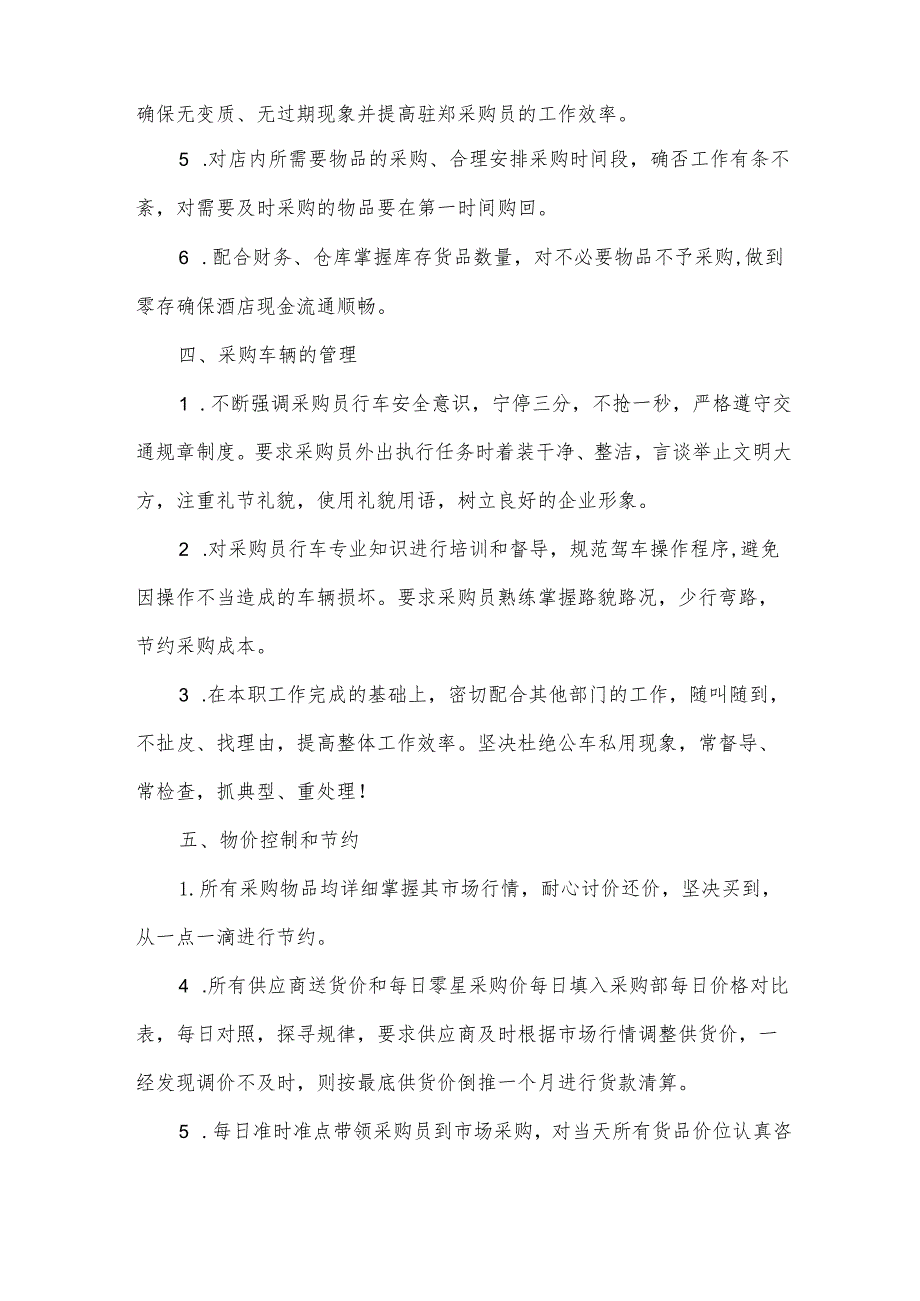 确保无变质、无过期现象并提高驻郑采购员的工作效率。
5 .对店内所需要物品的采购、合理安排采购时间段，确否工作有条不
紊，对需要及时采购的物品要在第一时间购回。
6 .配合财务、仓库掌握库存货品数量，对不必要物品不予采购,做到
零存确保酒店现金流通顺畅。
四、采购车辆的管理
1 .不断强调采购员行车安全意识，宁停三分，不抢一秒，严格遵守交
通规章制度。要求采购员外出执行任务时着装干净、整洁，言谈举止文明大
方，注重礼节礼貌，使用礼貌用语，树立良好的企业形象。
2 .对采购员行车专业知识进行培训和督导，规范驾车操作程序,避免
因操作不当造成的车辆损坏。要求采购员熟练掌握路貌路况，少行弯路，
节约采购成本。
3 .在本职工作完成的基础上，密切配合其他部门的工作，随叫随到，
不扯皮、找理由，提高整体工作效率。坚决杜绝公车私用现象，常督导、
常检查，抓典型、重处理！
五、物价控制和节约
1.所有采购物品均详细掌握其市场行情，耐心讨价还价，坚决买到，
从一点一滴进行节约。
4 .所有供应商送货价和每日零星采购价每日填入采购部每日价格对比
表，每日对照，探寻规律，要求供应商及时根据市场行情调整供货价，一
经发现调价不及时，则按最底供货价倒推一个月进行货款清算。
5 .每日准时准点带领采购员到市场采购，对当天所有货品价位认真咨